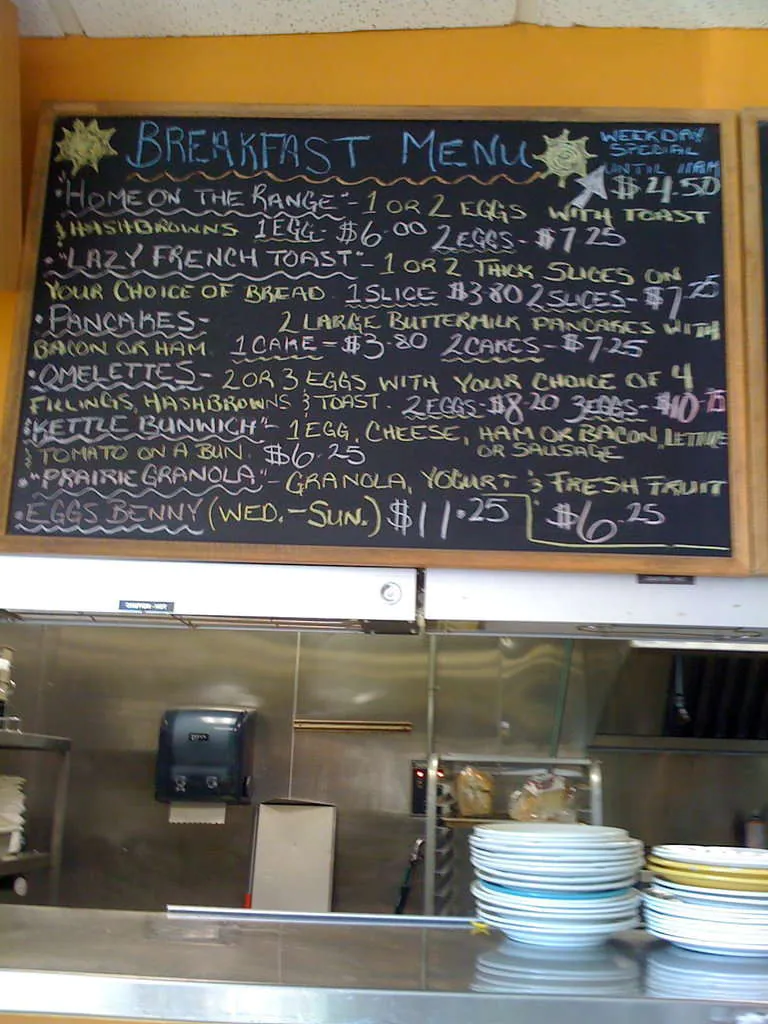 BREAKFAST MENU
WEEKDAY
SPECIAL
UNTIL 11AM
$4.50
• "HOME ON THE RANGE" - 1 OR 2 EGGS WITH TOAST
& HASHBROWNS 1 EGG - $6.00 2 EGGS - $7.25
• "LAZY FRENCH TOAST" - 1 OR 2 THICK SLICES ON
YOUR CHOICE OF BREAD 1 SLICE $3.80 2 SLICES - $7.25
• PANCAKES - 2 LARGE BUTTERMILK PANCAKES WITH
BACON OR HAM 1 CAKE - $3.80 2 CAKES - $7.25
• OMELETTES - 2 OR 3 EGGS WITH YOUR CHOICE OF 4
FILLINGS, HASHBROWNS & TOAST. 2 EGGS - $8.20 3 EGGS - $10.75
"KETTLE BUNWICH" - 1 EGG, CHEESE, HAM OR BACON, LETTUCE
OR SAUSAGE
& TOMATO ON A BUN. $6.25
• "PRAIRIE GRANOLA" - GRANOLA, YOGURT & FRESH FRUIT
$6.25
• EGGS BENNY (WED. - SUN.) $11.25